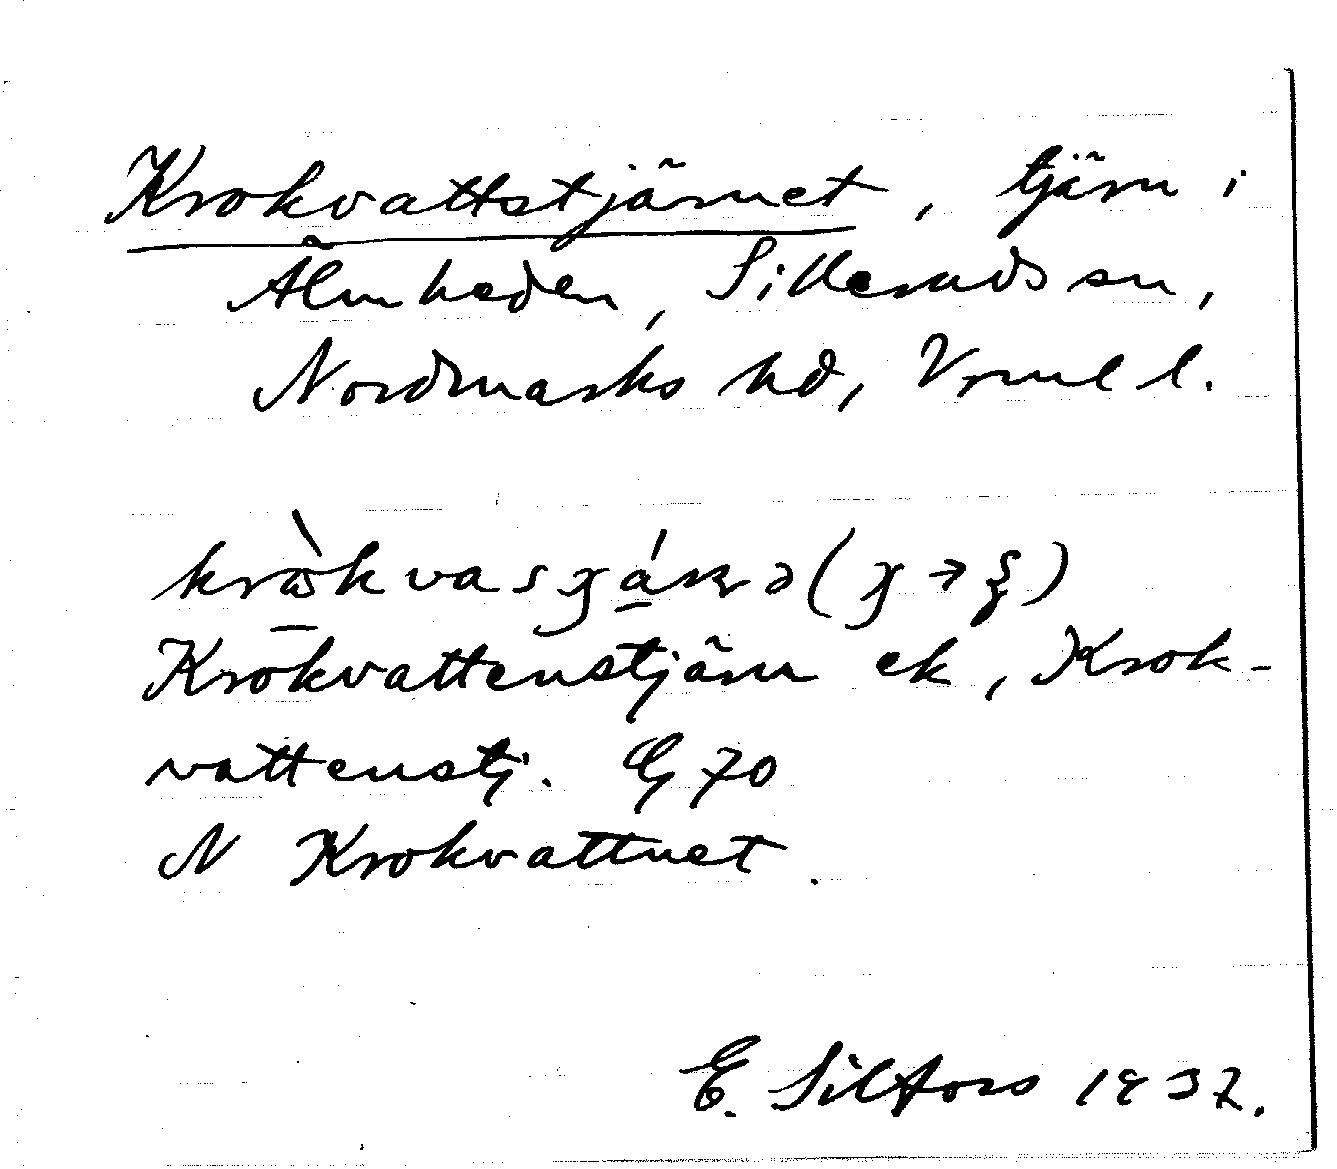 Krokvattstjärnet, tjärn i
Älmheden, Sillerudssn,
Nordmarks hd, Vrml l.
Krokvattenstjärn ek, Krok-
vattenstj. G 70
N Krokvattnet
E. Silfors 1937.